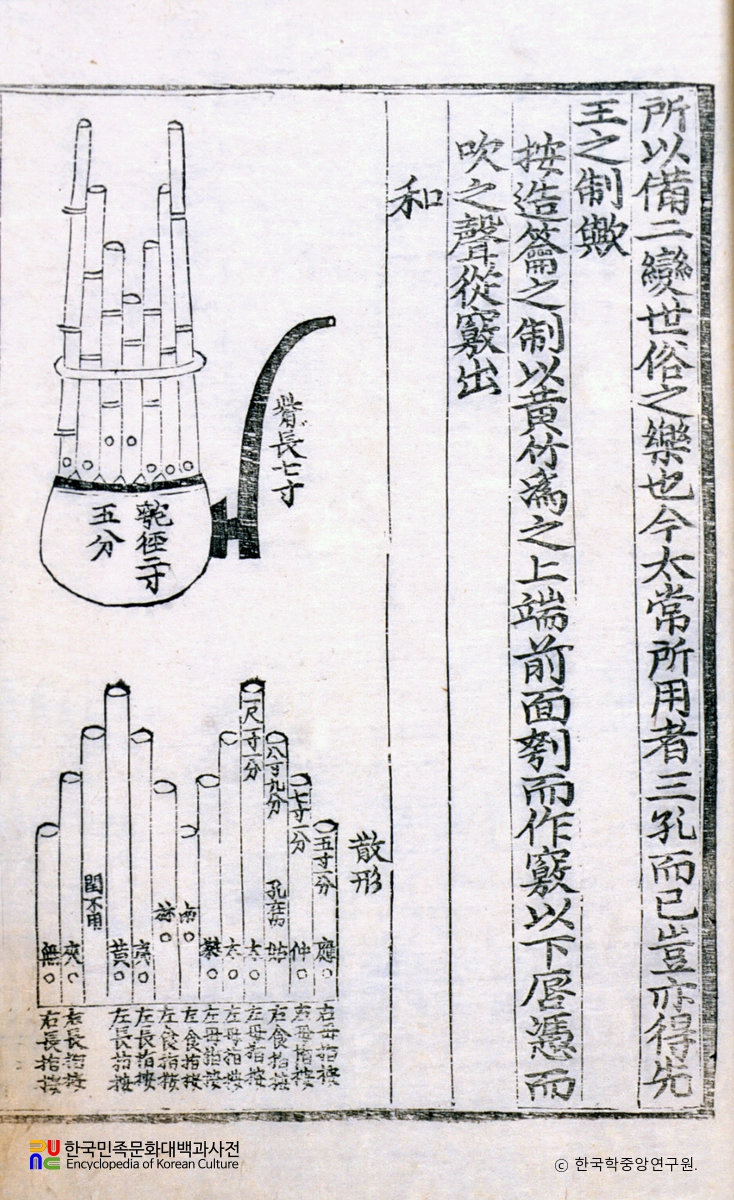 所以備二變世俗之樂也今太常所用者三孔而已豈亦得先
王之制歟
按造籥之制以黃竹爲之上端前面刳而作竅以下唇憑而
吹之聲從竅出
和
觜長七寸
匏徑二寸
五分
散形
一尺一寸一分
八寸九分
七寸一分
五寸一分
孔在內
應
仲
姑
太
太
南
林
黃
閏不用
夾
無
右母指按
右母指按
右食指按
左母指按
左母指按
左母指按
左食指按
左食指按
左長指按
左長指按
右長指按
右長指按
한국민족문화대백과사전
Encyclopedia of Korean Culture
© 한국학중앙연구원.